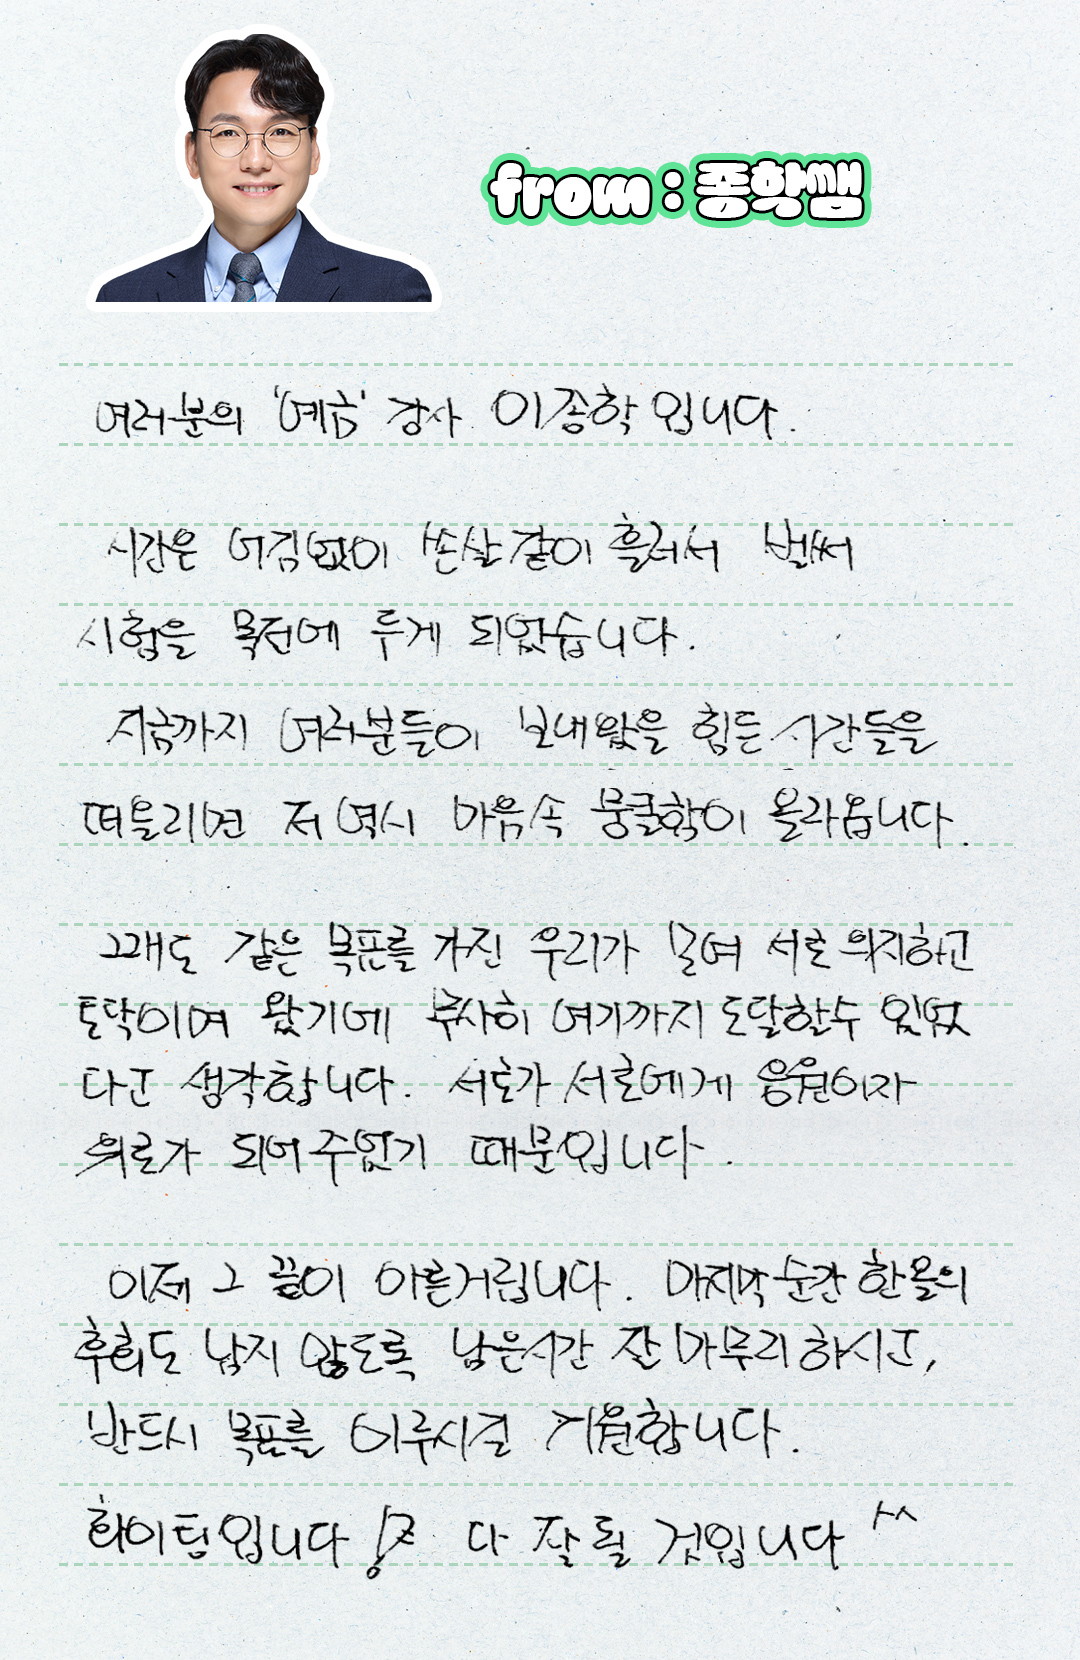 from : 종학쌤
여러분의 '예금' 강사 이종학 입니다.
시간은 어김없이 쏜살같이 흘러서 벌써
시험을 목전에 두게 되었습니다.
지금까지 여러분들이 보내왔을 힘든 시간들을
떠올리면 저 역시 마음속 뭉클함이 올라옵니다.
그래도 같은 목표를 가진 우리가 모여 서로 의지하고
토닥이며 왔기에 무사히 여기까지 도달할수 있었
다고 생각합니다. 서로가 서로에게 응원이자
위로가 되어주었기 때문입니다.
이제 그 끝이 아른거립니다. 마지막 순간 한몰의
후회도 남지 않도록 남은시간 잘 마무리하시고,
반드시 목표를 이루시길 기원합니다.
화이팅입니다! 다 잘 될 것입니다 ^^